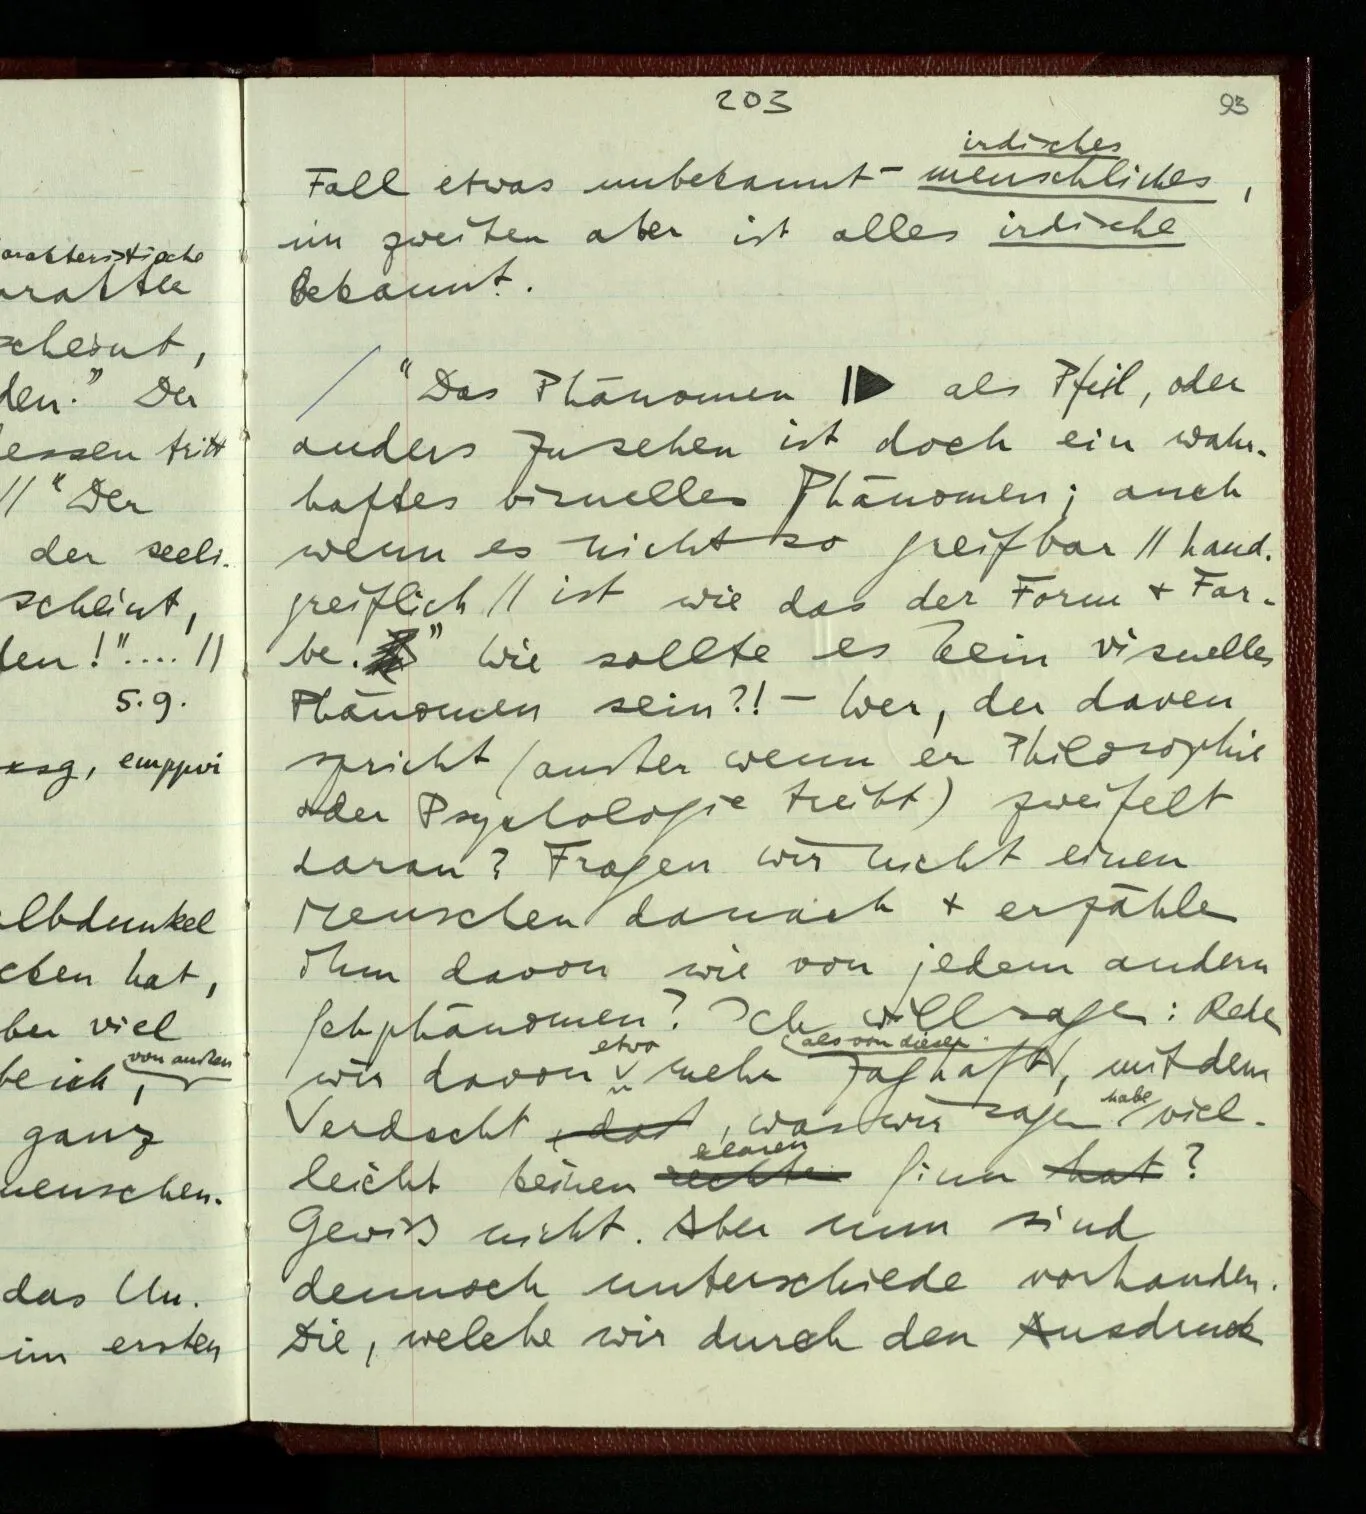 arakteristische
arakter
scheint,
den." Der
dessen tritt
// "Der
der seeli-
scheint,
den!".... //
5.9.
xsg, emppvi
albdunkel
cken hat,
ber viel
von außen
be ich,
ganz
menschen.
das Un-
im ersten
203
93
irdisches
Fall etwas unbekannt-menschliches,
im zweiten aber ist alles irdische
bekannt.
/ "Das Phänomen als Pfeil, oder
anders zu sehen ist doch ein wahr-
haftes visuelles Phänomen; auch
wenn es nicht so greifbar // hand-
greiflich // ist wie das der Form + Far-
be." Wie sollte es kein visuelles
Phänomen sein?! – Wer, der davon
spricht (außer wenn er Philosophie
oder Psychologie treibt) zweifelt
daran? Fragen wir nicht einen
Menschen danach + erzählen
ihm davon wie von jedem andern
Sehphänomen? Ich will sagen: Reden
etwa als von diesen
wir davon mehr zaghaft, mit dem
Verdacht, daß, was wir sagen habe viel-
klaren
leicht keinen rechten Sinn hat?
Gewiß nicht. Aber nun sind
dennoch unterschiede vorhanden.
Die, welche wir durch den Ausdruck